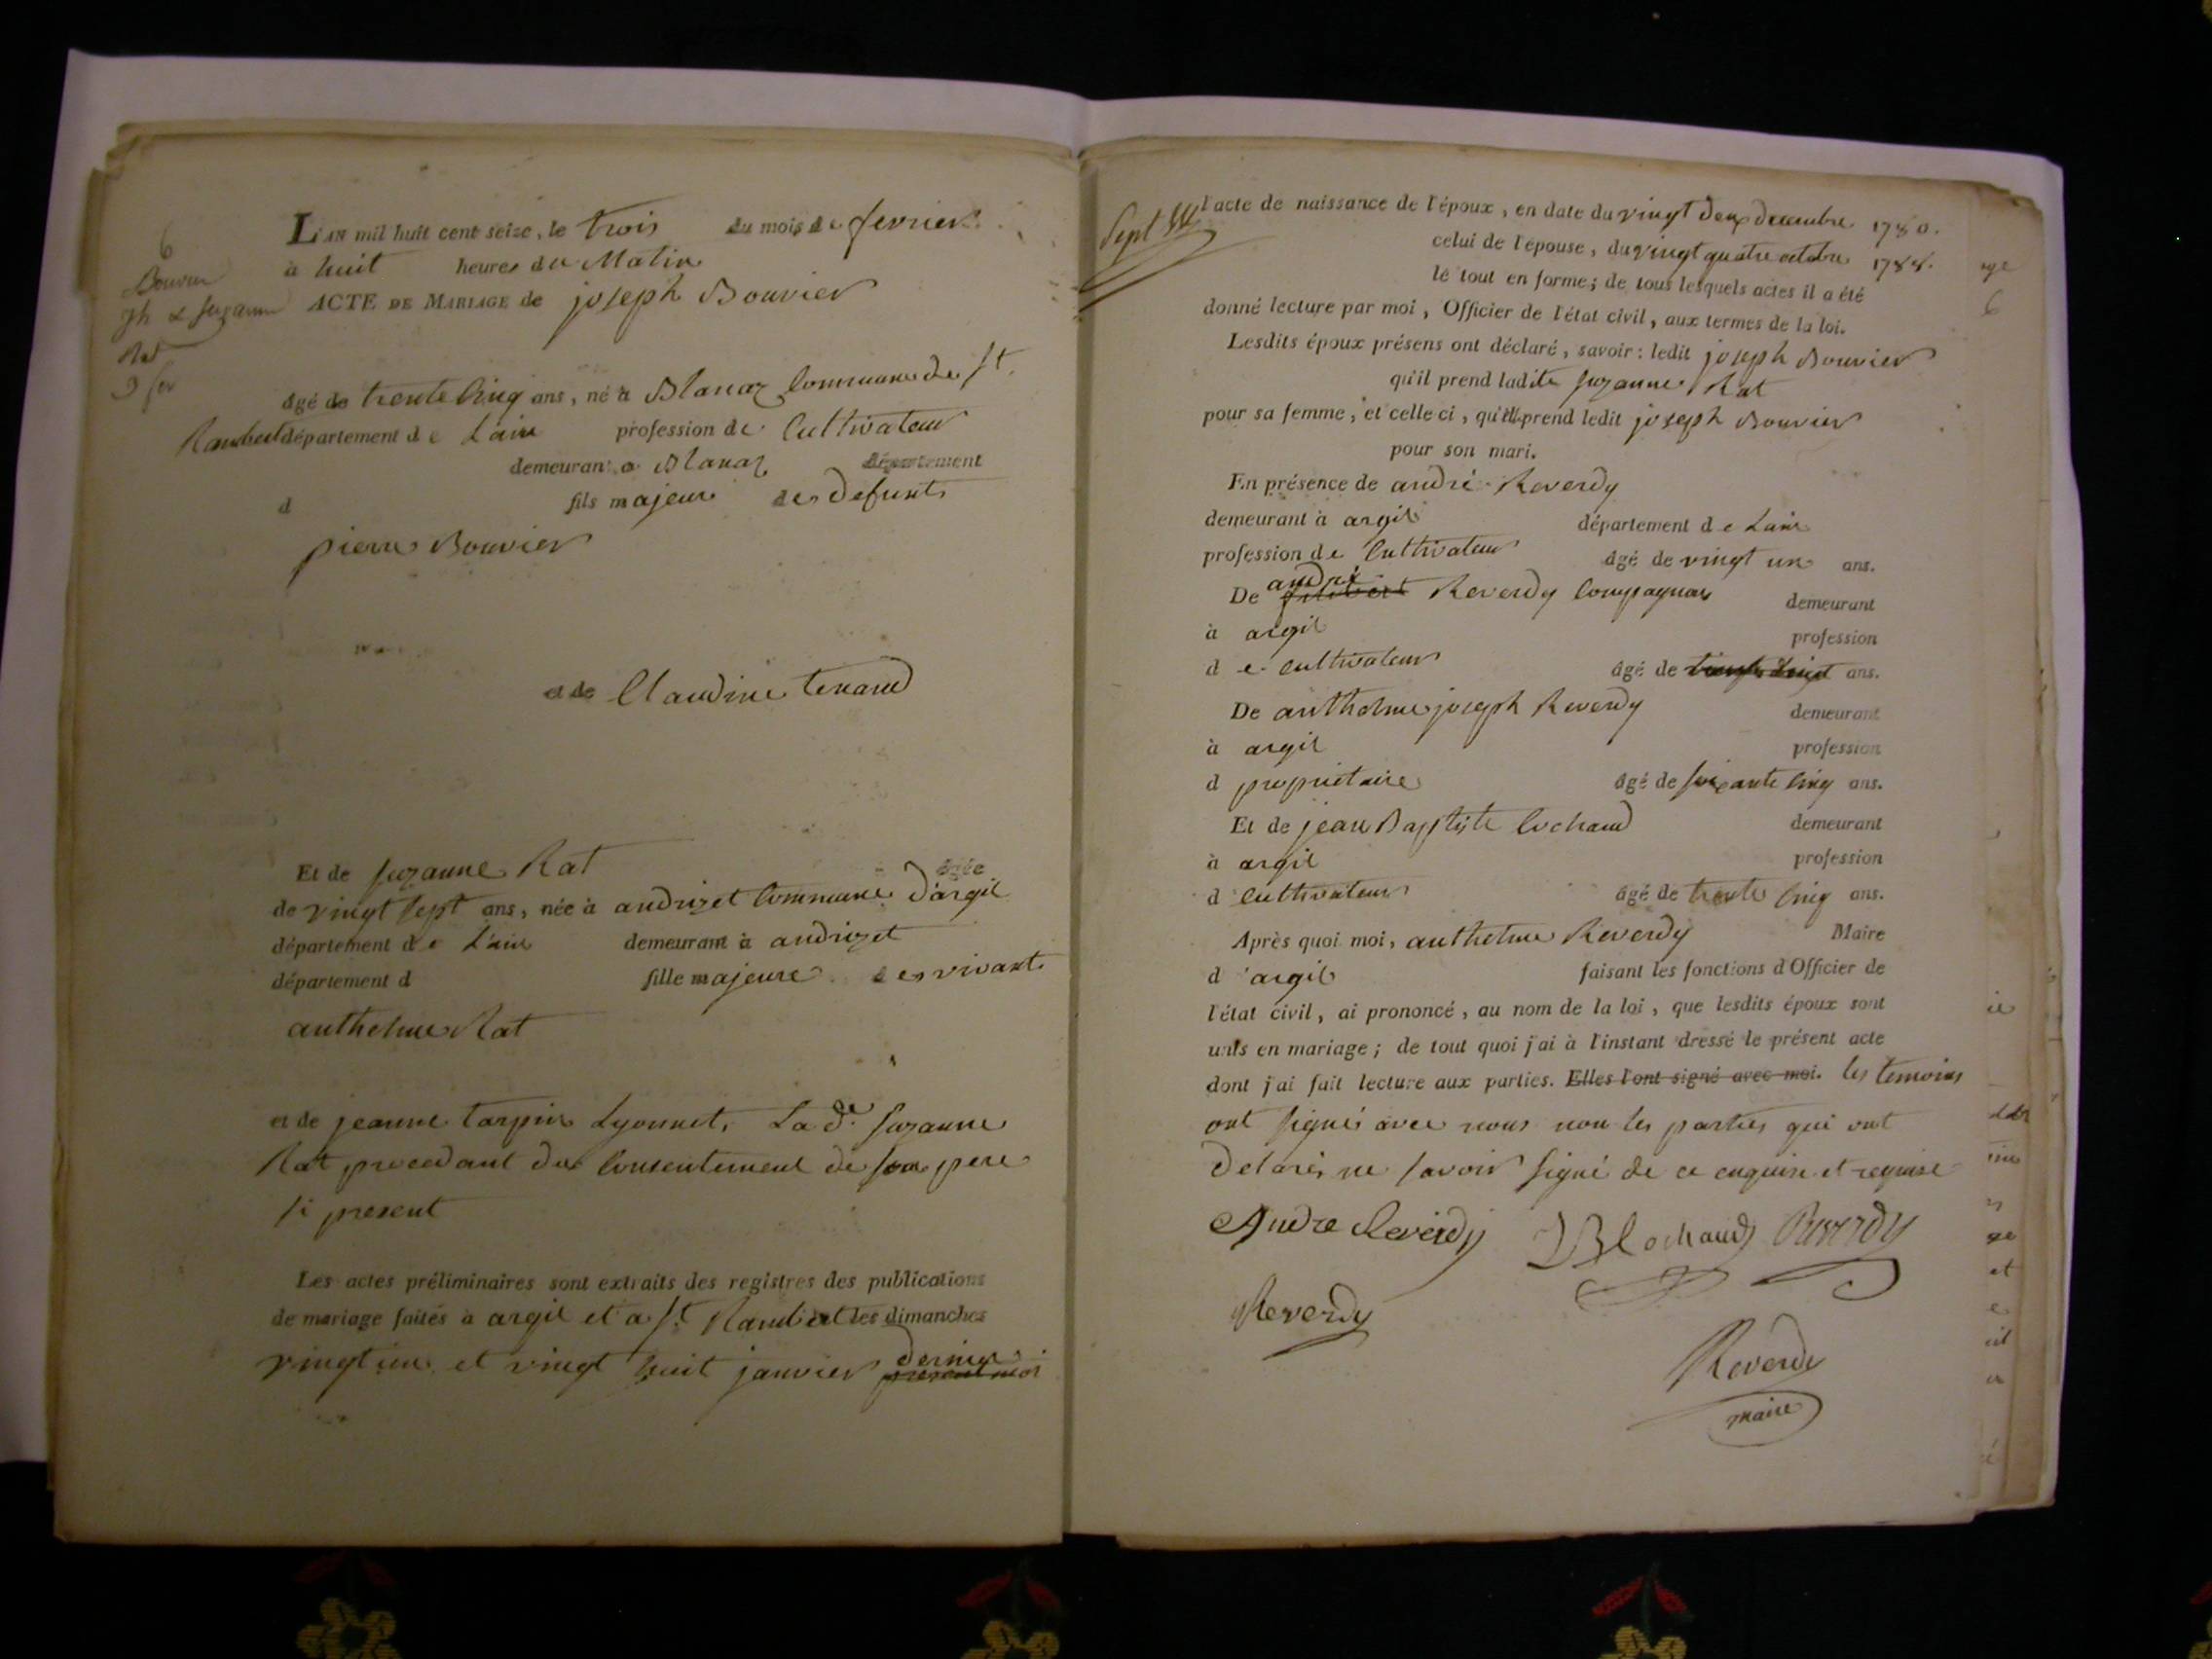 6
Bouvier
Jh & Suzanne
Rat
3 fev
L'AN mil huit cent seize, le trois du mois de fevrier
à huit heures du Matin
ACTE DE MARIAGE de joseph Bouvier
âgé de trente cinq ans, né à Blanaz Commune de St.
Rambert département de Lain profession de Cultivateur
demeurant à Blanaz département
d fils majeur des defunts
pierre Bouvier
et de Claudine tenand
Et de Suzanne Rat âgée
de vingt sept ans, née à andrizet Commune d'argil
département de L'ain demeurant à andrizet
département d fille majeure des vivants
anthelme Rat
et de jeanne tarpin Lyonnet, La de. Suzanne
Rat procedant du Consentement de son pere
si present
Les actes préliminaires sont extraits des registres des publications
de mariage faites à argil et a St Rambert les dimanches
vingt un et vingt huit janvier dernier
present moi
Sept
l'acte de naissance de l'époux, en date du vingt deux decembre 1780.
celui de l'épouse, du vingt quatre octobre 1788.
le tout en forme; de tous lesquels actes il a été
donné lecture par moi, Officier de l'état civil, aux termes de la loi.
Lesdits époux présens ont déclaré, savoir: ledit joseph Bouvier
qu'il prend ladite Suzanne Rat
pour sa femme, et celle ci, qu'elle prend ledit joseph Bouvier
pour son mari.
En présence de andré Reverdy
demeurant à argil département de Lain
profession de Cultivateur âgé de vingt un ans.
De andré Reverdy Compagnon demeurant
à argil profession
de cultivateur âgé de ans.
De anthelme joseph Reverdy demeurant
à argil profession
d propriétaire âgé de soixante cinq ans.
Et de jean Baptiste Cochand demeurant
à argil profession
d Cultivateur âgé de trente cinq ans.
Après quoi moi, anthelme Reverdy Maire
d'argil faisant les fonctions d'Officier de
l'état civil, ai prononcé, au nom de la loi, que lesdits époux sont
unis en mariage; de tout quoi j'ai à l'instant dressé le présent acte
dont j'ai fait lecture aux parties. Elles l'ont signé avec moi. les temoins
ont signés avec nous non les parties qui ont
declarés ne savoir signé de ce enquise et requise
Andre Reverdy JB Cochand Reverdy
Reverdy
Reverdy
maire